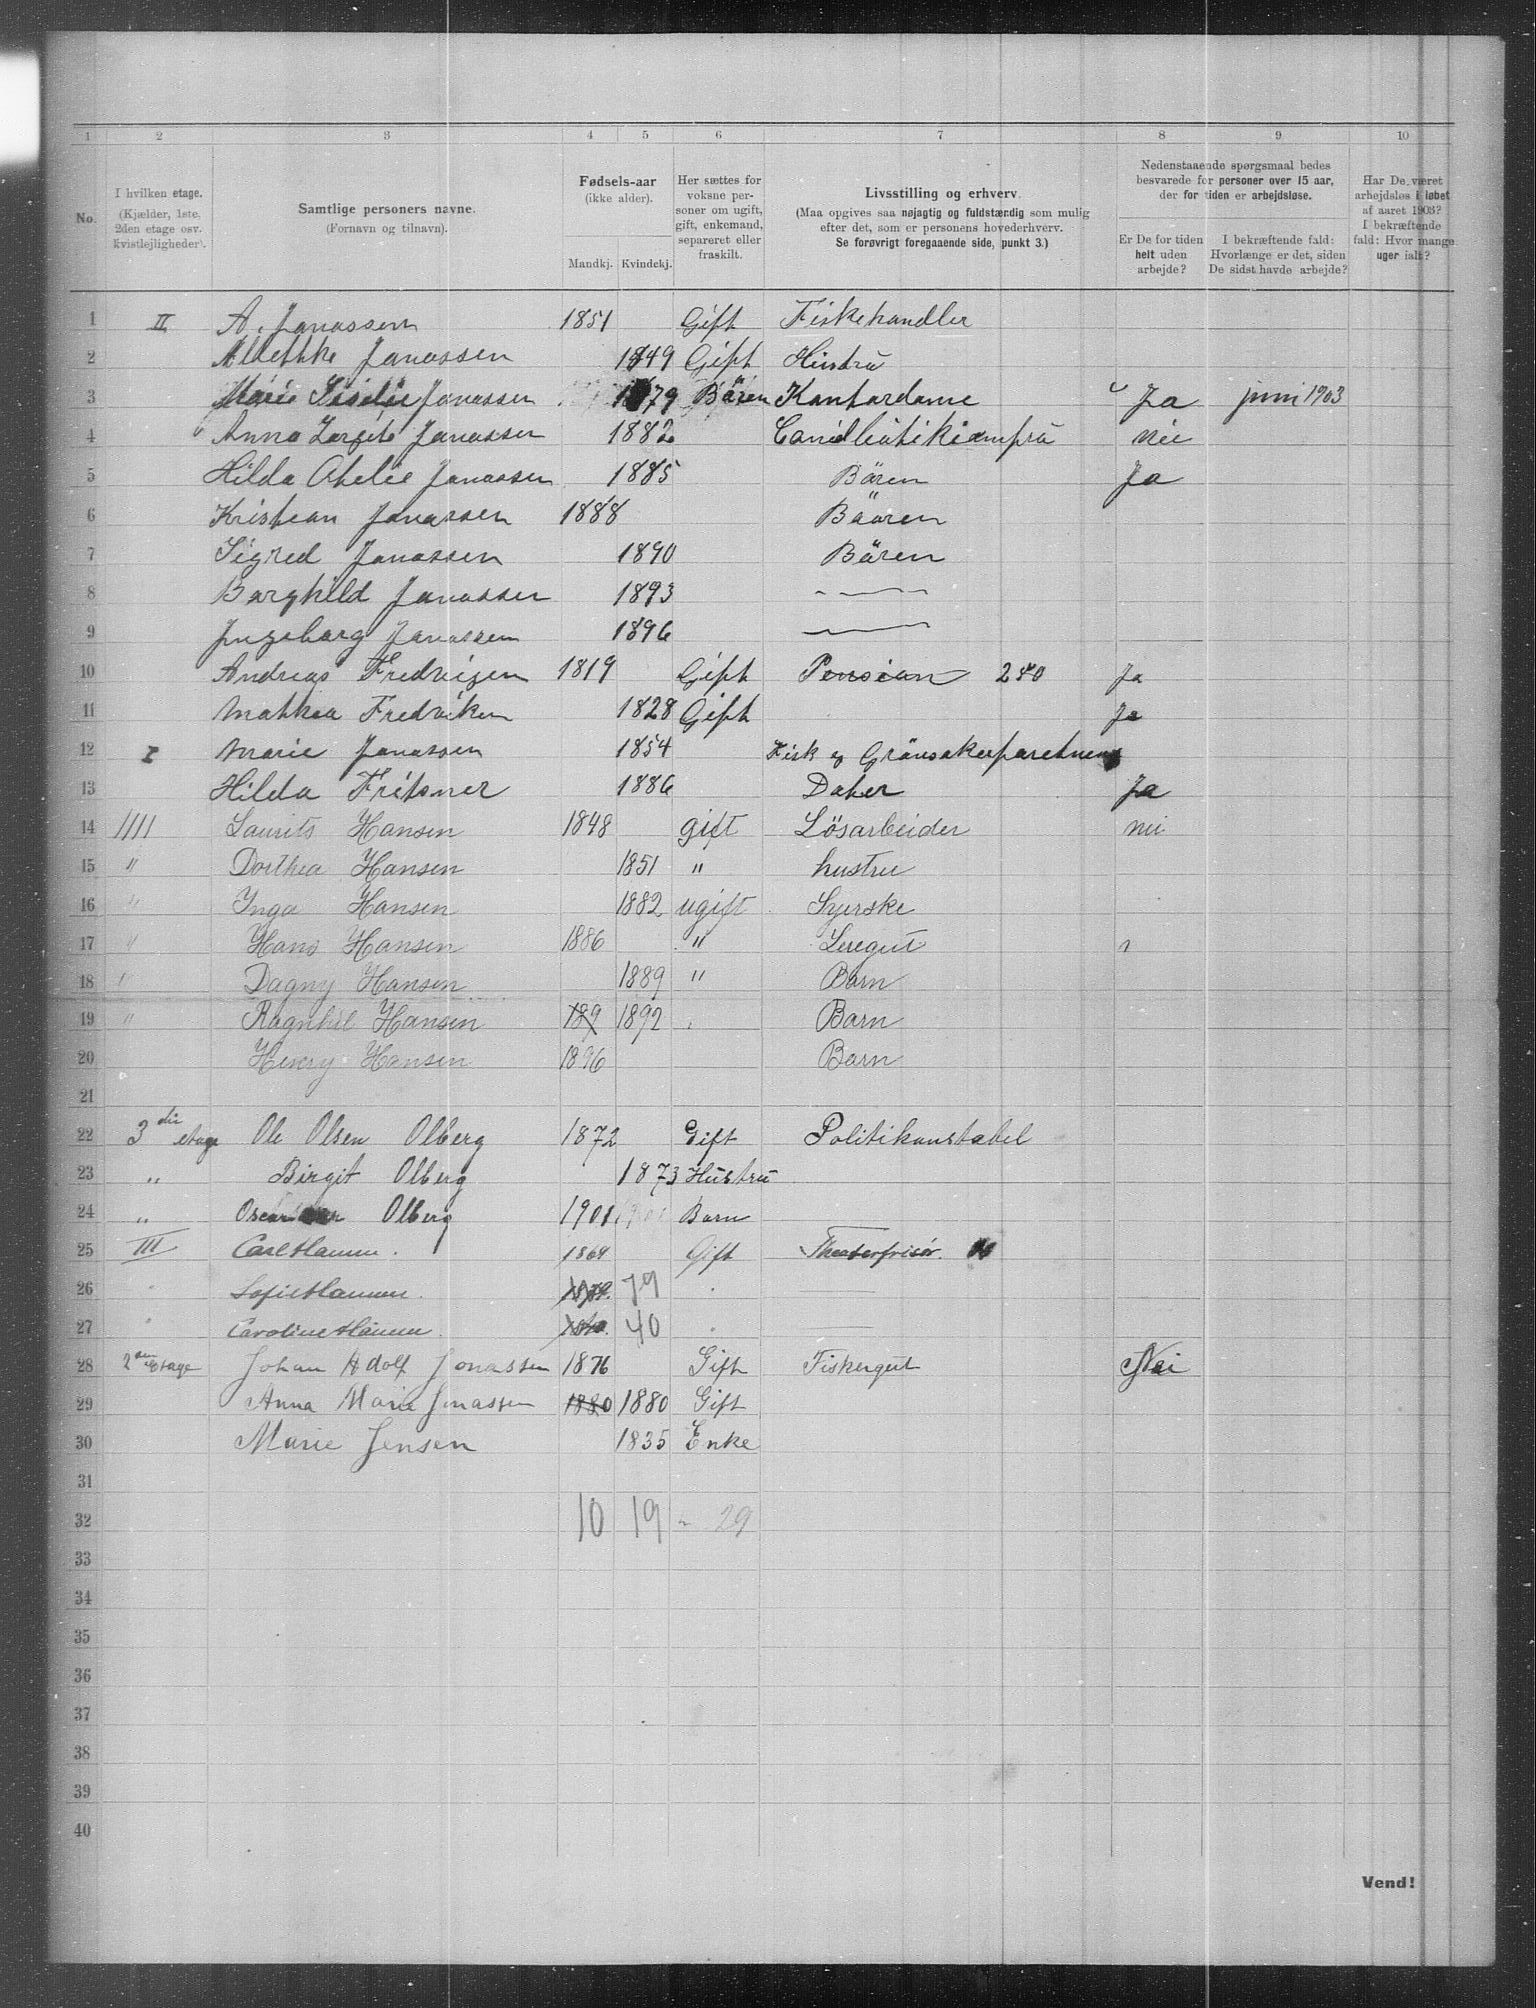 1 2 3 4 5 6 7 8 9 10
No.
I hvilken etage. (Kjælder, 1ste, 2den etage osv. kvistlejligheder).
Samtlige personers navne. (Fornavn og tilnavn).
Fødsels-aar (ikke alder). Mandkj. Kvindekj.
Her sættes for voksne personer om ugift, gift, enkemand, separeret eller fraskilt.
Livsstilling og erhverv. (Maa opgives saa nøjagtig og fuldstændig som mulig efter det, som er personens hovederhverv. Se forøvrigt foregaaende side, punkt 3.)
Nedenstaaende spørgsmaal bedes besvarede for personer over 15 aar, der for tiden er arbejdsløse.
Er De for tiden helt uden arbejde?
I bekræftende fald: Hvorlænge er det, siden De sidst havde arbejde?
Har De været arbejdsløs i løbet af aaret 1903? I bekræftende fald: Hvor mange uger ialt?
1 II A. Janassen 1851 Gift Fiskehandler
2 Janassen 1849 Gift Hustrü
3 Marie Janassen 1879 Bären Kantardame Ja juni 1903
4 Anna Janassen 1882 nei
5 Hilda Janassen 1885 Bären Ja
6 Kristean Janassen 1888 Bäären
7 Sigred Janassen 1890 Bären
8 Barghild Janassen 1893 —
9 Ingebarg Janassen 1896 —
10 Andreas Fredrigen 1819 Gift Pensian 240 Ja
11 Mathea Fredriken 1828 Gift Ja
12 I Marie Janassen 1854 Fisk og
13 Hilda Fritsner 1886 Dater Ja
14 IIII Laurits Hansen 1848 gift Lösarbeider nei
15 " Dorthea Hansen 1851 " hustru
16 " Inga Hansen 1882 ugift Syerske
17 " Hans Hansen 1886 " Leregut
18 " Dagny Hansen 1889 " Barn
19 " Ragnhil Hansen 189 1892 Barn
20 Henry Hansen 1896 Barn
21
22 3die etage Ole Olsen Olberg 1872 Gift Politikonstabel
23 " Birgit Olberg 1873 Hustru
24 " Oscar Olberg 1901 1901 Barn
25 III Carl Hamm. 1864 Gift Theaterfrisör.
26 " Sofie Hamm. 79
27 " Caroline Hamm. 40
28 2den Etage Johan Adolf Jonassen 1876 Gift Fiskergut Nei
29 Anna Marie Jonassen 1880 1880 Gift
30 Marie Jensen 1835 Enke
31
32 10 19 - 29
33
34
35
36
37
38
39
40
Vend!